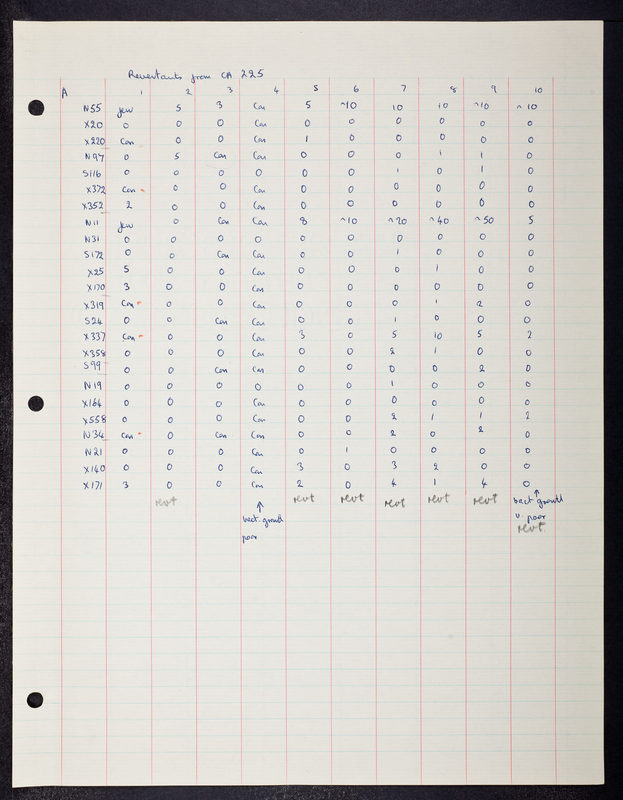 Revertants from CA 225
A 1 2 3 4 5 6 7 8 9 10
N55 few 5 3 Con 5 ~10 10 10 ~10 ~10
X20 0 0 0 Con 0 0 0 0 0 0
X220 Con 0 0 Con 1 0 0 0 0 0
N97 0 5 Con Con 0 0 0 1 1 0
S116 0 0 0 0 0 0 1 0 1 0
X372 Con - 0 0 Con 0 0 0 0 0 0
X352 2 0 0 Con 0 0 0 0 0 0
N11 few 0 Con Con 8 ~10 ~20 ~40 ~50 5
N31 0 0 0 0 0 0 0 0 0 0
S172 0 0 Con Con 0 0 1 0 0 0
X25 5 0 0 Con 0 0 0 1 0 0
X170 3 0 0 Con 0 0 0 0 0 0
X319 Con - 0 0 Con 0 0 0 1 2 0
S24 0 0 Con Con 0 0 1 0 0 0
X337 Con - 0 0 Con 3 0 5 10 5 2
X358 0 0 0 Con 0 0 2 1 0 0
S99 0 0 Con Con 0 0 0 0 2 0
N19 0 0 0 0 0 0 1 0 0 0
X164 0 0 0 Con 0 0 0 0 0 0
X558 0 0 0 Con 0 0 2 1 1 2
N34 Con - 0 Con Con 0 0 2 0 2 0
N21 0 0 0 Con 0 1 0 0 0 0
X140 0 0 0 Con 3 0 3 2 0 0
X171 3 0 0 Con 2 0 4 1 4 0
revt ↑ revt revt revt revt revt ↑
bact. growth
poor
bact growth
v. poor
revt